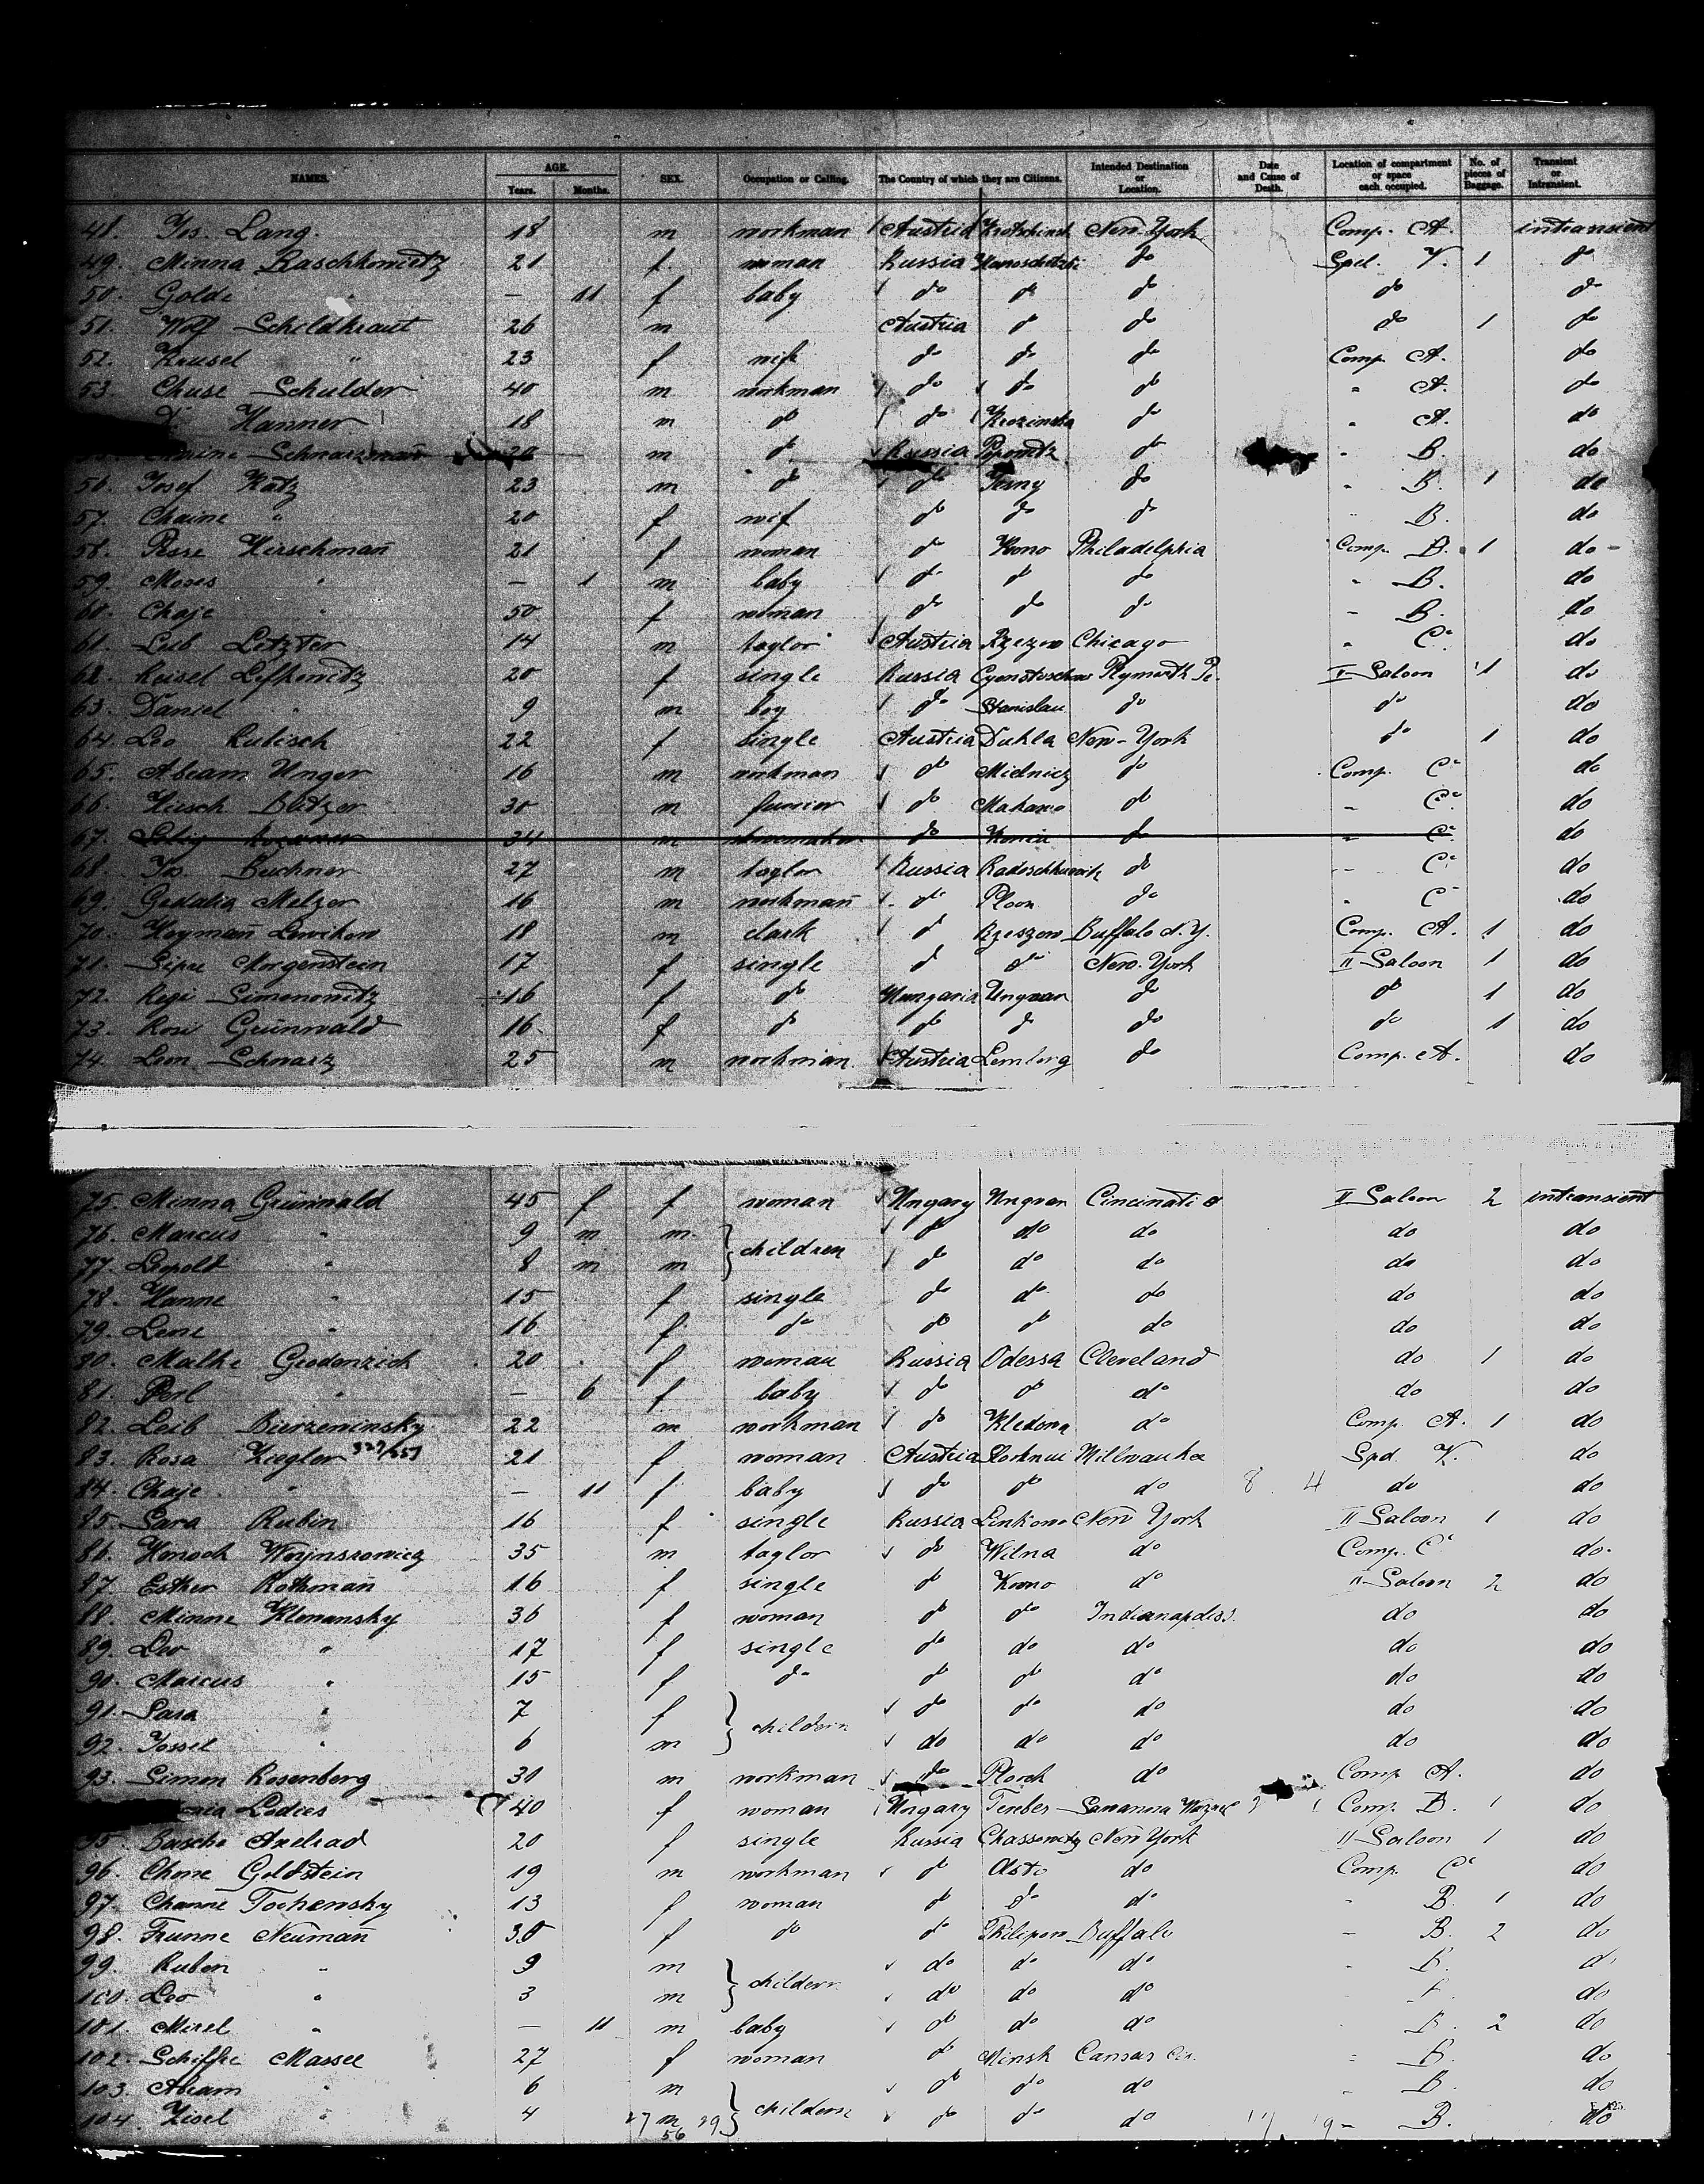 NAMES. AGE. Years. Months. SEX. Occupation or Calling. The Country of which they are Citizens. Intended Destination or Location. Date and Cause of Death. Location of compartment or space each occupied. No. of pieces of Baggage. Transient or Intransient.
48. Jos. Lang. 18 m workman Austria New-York Comp. A. intransient
49. Minna Raschkowitz 21 f. woman Russia do Spd. V. 1 do
50. Golde " — 11 f baby do do do do do
51. Wolf Schildkraut 26 m Austria do do do 1 do
52. Keusel " 23 f wife do do do Comp. A. do
53. Chuse Schulder 40 m workman do do do " A. do
Hanner 18 m do do do " A. do
Schwarzmañ 20 m do Russia do " B. do
56. Josef Katz 23 m do do do " B. 1 do
57. Chaine " 20 f wif do do do " B. do
58. Rose Hirschmañ 21 f woman do Kowno Philadelphia Comp. B. 1 do
59. Moses " — 1 m baby do do do " B. do
60. Chaje " 50 f woman do do do " B. do
61. Leib Letzter 14 m taylor Austria Rzezow Chicago " C. do
62. Reisel Lefkowitz 20 f single Russia Plymouth Pe. II Saloon 1 do
63. Daniel " 9 m boy do Stanislau do do do
64. Leo Rubisch 22 f single Austria Dukla New-York do 1 do
65. Abram Unger 16 m workman do Mielnicz do Comp. C. do
66. Hirsch Blitzer 30 m do do " C. do
67. 34 m shoemaker do do " C. do
68. Jos. Buchner 27 m taylor Russia do " C. do
69. Gedalia Melzer 16 m workmañ do do " C do
70. Heymañ 18 m clark do Rzeszow Buffalo N.Y. Comp. A. 1 do
71. Morgenstein 17 f single do do New-York II Saloon 1 do
72. Regi Simonowitz 16 f do Hungaria Ungvar do do 1 do
73. Rosi Grünwald 16. f do do do do do 1 do
74. Leon Schwarz 25 m workman Austria Lemberg do Comp. A. do
75. Minna Grünwald 45 f f woman Ungary Ungvar Cincinati o II Saloon 2 intransient
76. Marcus " 9 m m children do do do do do
77. Leopold " 8 m m do do do do do
78. Hanne " 15 f single do do do do do
79. Lene " 16 f do do do do do do
80. Malke Grodenzick 20 f woman Russia Odessa Cleveland do 1 do
81. Perl " — 6 f baby do do do do do
82. Leib Bierzeninsky 22 m workman do do Comp. A. 1 do
83. Rosa Ziegler 21 f woman Austria Millwauke Spd. V. do
84. Chaje " — 11 f baby do do do 8 4 do do
85. Sara Rubin 16 f single Russia Linkowo New York II Saloon 1 do
86. Henoch 35 m taylor do Wilna do Comp. C do
87. Esther Rothmañ 16 f single do Kowno do II Saloon 2 do
88. Minne Klemansky 36 f woman do do Indianapolis do do
89. Leo " 17 f single do do do do do
90. Marcus " 15 f do do do do do do
91. Sara " 7 f childern do do do do do
92. Jossel " 6 m do do do do do
93. Simon Rosenberg 30 m workman do Plock do Comp A. do
Lodies 40 f woman Ungary Comp. B. 1 do
95. Basche Axelrad 20 f single Russia New York II Saloon 1 do
96. Chone Goldstein 19 m workman do do Comp. C do
97. Channe Tochensky 13 f woman do do do " B. 1 do
98. Frume Neumañ 30 f do do Buffalo " B. 2 do
99. Ruben " 9 m childern do do do " B. do
100. Leo " 3 m do do do do
101. Mirel " — 11 m baby do do do " B. 2 do
102. Schiffre Massee 27 f woman do Minsk Cansas " B. do
103. Abram " 6 m childern do do do " B. do
104. Zisel " 4 m do do do " B. do
56